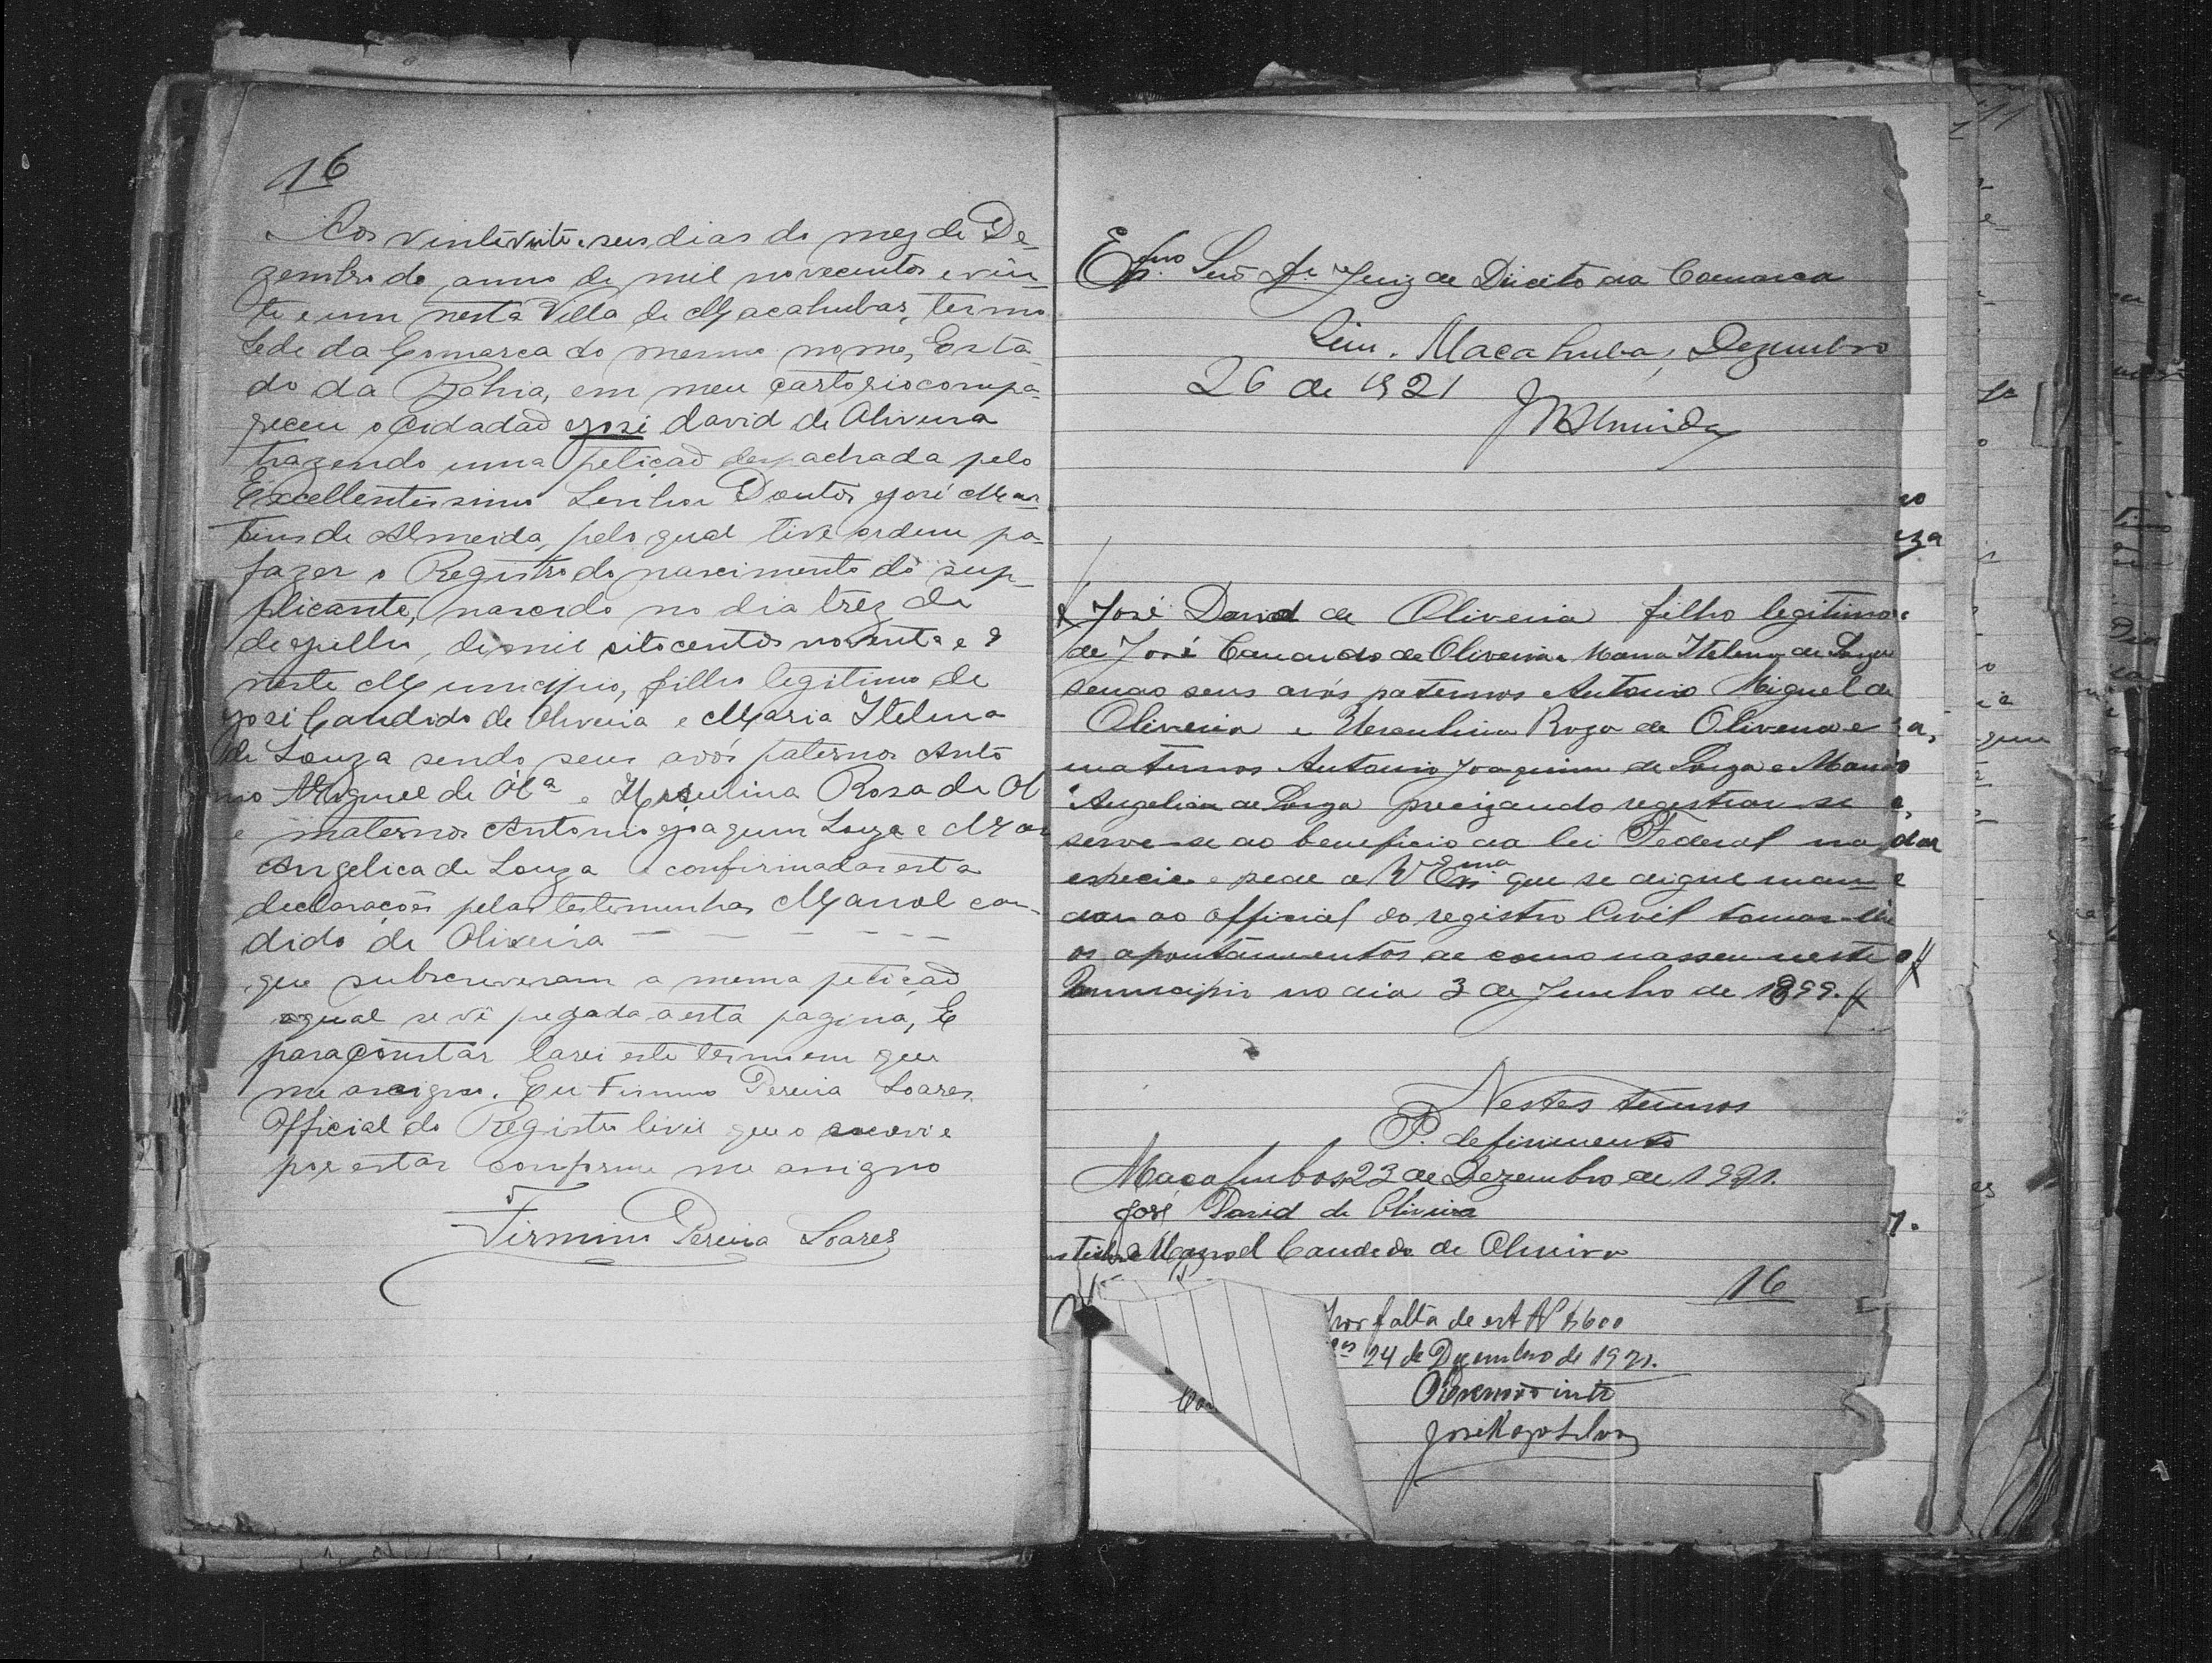 16
Aos vinte vinte e seis dias do mez de De-
zembro do anno de mil novecentos e vin-
te e um nesta Villa de Macahubas, termo
Sede da Comarca do mesmo nome, Esta
do da Bahia, em meu cartorio compa-
receu o cidadaõ José david de Oliveira
trazendo uma petiçaõ despachada pelo
Excellentissimo Senhor Doutor José Mar-
tins de Almeida, pelo qual tive ordem pa-
fazer o Registro do nascimento do sup-
plicante, nascido no dia trez de
de Julho, de mil oitocentos noventa e 9
neste Municipio, filho legitimo de
José Candido de Oliveira e Maria Itelina
de Souza sendo seus avós paternos Antô
nio Miguel de Olª e Herculina Rosa de Ol
e maternos Antonio Joaquim Souza e Mar
Angelica de Souza confirmadas esta
declaraçoẽs pelas testemunhas Manoel can-
dido de Oliveira - - - - - -
que subscreveram a mesma petiçaõ
aqual se vê pregada a esta pagina, E
para constar lavrei este termo em que
me assigno. Eu Firmino Pereira Soares
Official do Registro Civil que o escrevi e
por estar conforme me assigno
Firmino Pereira Soares
Exmo. Senr Dr. Juiz de Direito da Comarca
Sim. Macahuba, Dezembro
26 de 1921
JMAlmeida
José David de Oliveira filho legitimo
de José Candido de Oliveira e Maria Itelina de Souza
sendo seus avós paternos Antonio Miguel de
Oliveira e Herculina Roza de Oliveira e
maternos Antonio Joaquim de Souza e Maria
Angelica de Souza precizando registrar-se
serve-se do beneficio da lei Federal na
especie e pede a V Exma que se digne man-
dar ao official do registro Civil tomar-lhe
os apontamentos de como nasseu neste
Municipio no dia 3 de Junho de 1899.
Nestes termos
P. deferimento
Macahubas 23 de Dezembro de 1921.
José David de Oliveira
Manoel Candedo de Oliveira
16
Por falta de est Nº $600
24 de Dezembro de 1921.
O Escrivão intº